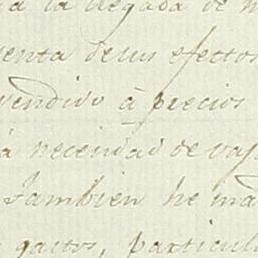 a la llegada de
venta de sus efectos
vendido à precios
à necesidad de
tambien he
gastos, particul